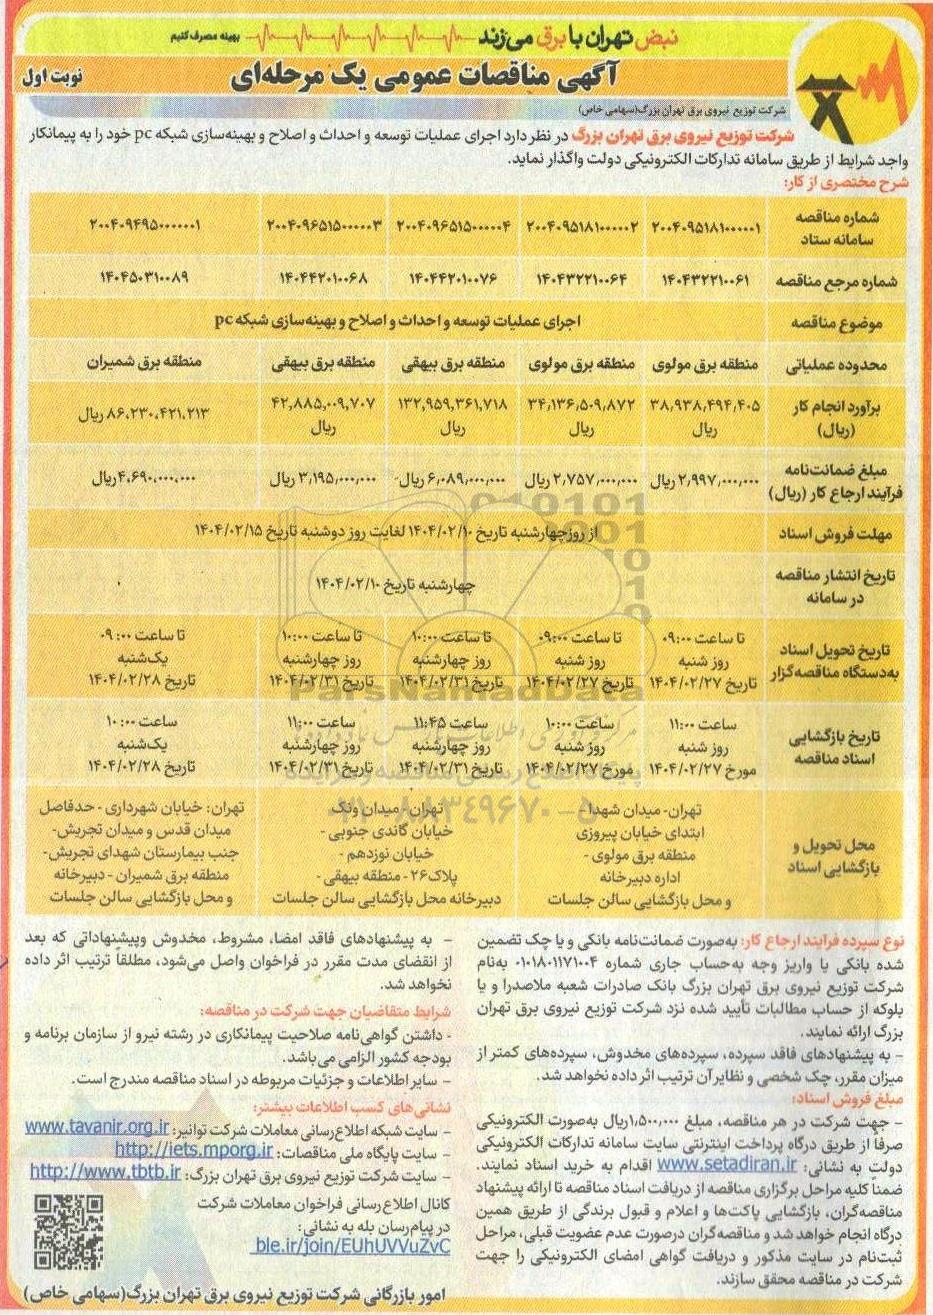 نبض تهران با برق می‌زند
بهینه مصرف کنیم
آگهی مناقصات عمومی یک مرحله‌ای
نوبت اول
شرکت توزیع نیروی برق تهران بزرگ(سهامی خاص)
شرکت توزیع نیروی برق تهران بزرگ در نظر دارد اجرای عملیات توسعه و احداث و اصلاح و بهینه‌سازی شبکه pc خود را به پیمانکار
واجد شرایط از طریق سامانه تدارکات الکترونیکی دولت واگذار نماید.
شرح مختصری از کار:
شماره مناقصه سامانه ستاد | ۲۰۰۴۰۹۵۱۸۱۰۰۰۰۰۱ | ۲۰۰۴۰۹۵۱۸۱۰۰۰۰۰۲ | ۲۰۰۴۰۹۶۵۱۵۰۰۰۰۰۴ | ۲۰۰۴۰۹۶۵۱۵۰۰۰۰۰۳ | ۲۰۰۴۰۹۴۹۵۰۰۰۰۰۰۱
شماره مرجع مناقصه | ۱۴۰۴۳۲۲۱۰۰۶۱ | ۱۴۰۴۳۲۲۱۰۰۶۴ | ۱۴۰۴۴۲۰۱۰۰۷۶ | ۱۴۰۴۴۲۰۱۰۰۶۸ | ۱۴۰۴۵۰۳۱۰۰۸۹
موضوع مناقصه | اجرای عملیات توسعه و احداث و اصلاح و بهینه‌سازی شبکه pc
محدوده عملیاتی | منطقه برق مولوی | منطقه برق مولوی | منطقه برق بیهقی | منطقه برق بیهقی | منطقه برق شمیران
برآورد انجام کار (ریال) | ۳۸,۹۳۸,۴۹۴,۴۰۵ ریال | ۳۴,۱۳۶,۵۰۹,۸۷۲ ریال | ۱۳۲,۹۵۹,۳۶۱,۷۱۸ ریال | ۴۲,۸۸۵,۰۰۹,۷۰۷ ریال | ۸۶,۲۳۰,۴۲۱,۲۱۳ ریال
مبلغ ضمانت‌نامه فرآیند ارجاع کار (ریال) | ۲,۹۹۷,۰۰۰,۰۰۰ ریال | ۲,۷۵۷,۰۰۰,۰۰۰ ریال | ۶,۰۸۹,۰۰۰,۰۰۰ ریال | ۳,۱۹۵,۰۰۰,۰۰۰ ریال | ۴,۶۹۰,۰۰۰,۰۰۰ ریال
مهلت فروش اسناد | از روز چهارشنبه تاریخ ۱۴۰۴/۰۲/۱۰ لغایت روز دوشنبه تاریخ ۱۴۰۴/۰۲/۱۵
تاریخ انتشار مناقصه در سامانه | چهارشنبه تاریخ ۱۴۰۴/۰۲/۱۰
تاریخ تحویل اسناد به‌دستگاه مناقصه‌گزار | تا ساعت ۰۹:۰۰ روز شنبه تاریخ ۱۴۰۴/۰۲/۲۷ | تا ساعت ۰۹:۰۰ روز شنبه تاریخ ۱۴۰۴/۰۲/۲۷ | تا ساعت ۱۰:۰۰ روز چهارشنبه تاریخ ۱۴۰۴/۰۲/۳۱ | تا ساعت ۱۰:۰۰ روز چهارشنبه تاریخ ۱۴۰۴/۰۲/۳۱ | تا ساعت ۰۹:۰۰ یک‌شنبه تاریخ ۱۴۰۴/۰۲/۲۸
تاریخ بازگشایی اسناد مناقصه | ساعت ۱۱:۰۰ روز شنبه مورخ ۱۴۰۴/۰۲/۲۷ | ساعت ۱۰:۰۰ روز شنبه مورخ ۱۴۰۴/۰۲/۲۷ | ساعت ۱۱:۴۵ روز چهارشنبه تاریخ ۱۴۰۴/۰۲/۳۱ | ساعت ۱۱:۰۰ روز چهارشنبه تاریخ ۱۴۰۴/۰۲/۳۱ | ساعت ۱۰:۰۰ یک‌شنبه تاریخ ۱۴۰۴/۰۲/۲۸
محل تحویل و بازگشایی اسناد | تهران- میدان شهدا - ابتدای خیابان پیروزی منطقه برق مولوی - اداره دبیرخانه و محل بازگشایی سالن جلسات | تهران - میدان ونک خیابان گاندی جنوبی - خیابان نوزدهم - پلاک ۲۶ - منطقه بیهقی - دبیرخانه محل بازگشایی سالن جلسات | تهران: خیابان شهرداری - حدفاصل میدان قدس و میدان تجریش- جنب بیمارستان شهدای تجریش- منطقه برق شمیران - دبیرخانه و محل بازگشایی سالن جلسات
ParsNamadData
پایگاه اطلاع رسانی مناقصه و مزایده
۰۲۱-۸۸۳۴۹۶۷۰-۵
نوع سپرده فرآیند ارجاع کار: به‌صورت ضمانت‌نامه بانکی و یا چک تضمین
شده بانکی یا واریز وجه به‌حساب جاری شماره ۰۱۰۱۸۰۱۱۷۱۰۰۴ به‌نام
شرکت توزیع نیروی برق تهران بزرگ بانک صادرات شعبه ملاصدرا و یا
بلوکه از حساب مطالبات تأیید شده نزد شرکت توزیع نیروی برق تهران
بزرگ ارائه نمایند.
- به پیشنهادهای فاقد سپرده، سپرده‌های مخدوش، سپرده‌های کمتر از
میزان مقرر، چک شخصی و نظایر آن ترتیب اثر داده نخواهد شد.
مبلغ فروش اسناد:
- جهت شرکت در هر مناقصه، مبلغ ۱,۵۰۰,۰۰۰ریال به‌صورت الکترونیکی
صرفاً از طریق درگاه پرداخت اینترنتی سایت سامانه تدارکات الکترونیکی
دولت به نشانی: www.setadiran.ir اقدام به خرید اسناد نمایند.
ضمناً کلیه مراحل برگزاری مناقصه از دریافت اسناد مناقصه تا ارائه پیشنهاد
مناقصه‌گران، بازگشایی پاکت‌ها و اعلام و قبول برندگی از طریق همین
درگاه انجام خواهد شد و مناقصه‌گران درصورت عدم عضویت قبلی، مراحل
ثبت‌نام در سایت مذکور و دریافت گواهی امضای الکترونیکی را جهت
شرکت در مناقصه محقق سازند.
- به پیشنهادهای فاقد امضا، مشروط، مخدوش وپیشنهاداتی که بعد
از انقضای مدت مقرر در فراخوان واصل می‌شود، مطلقاً ترتیب اثر داده
نخواهد شد.
شرایط متقاضیان جهت شرکت در مناقصه:
- داشتن گواهی‌نامه صلاحیت پیمانکاری در رشته نیرو از سازمان برنامه و
بودجه کشور الزامی می‌باشد.
- سایر اطلاعات و جزئیات مربوطه در اسناد مناقصه مندرج است.
نشانی‌های کسب اطلاعات بیشتر:
- سایت شبکه اطلاع‌رسانی معاملات شرکت توانیر: www.tavanir.org.ir
- سایت پایگاه ملی مناقصات: http://iets.mporg.ir
- سایت شرکت توزیع نیروی برق تهران بزرگ: http://www.tbtb.ir
کانال اطلاع رسانی فراخوان معاملات شرکت
در پیام‌رسان بله به نشانی:
ble.ir/join/EUhUVVuZvC
امور بازرگانی شرکت توزیع نیروی برق تهران بزرگ(سهامی خاص)